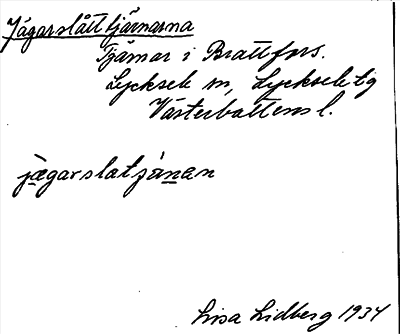 Jägarslåttjärnarna
Tjärnar i Brattfors.
Lycksele sn, Lycksele tg
Västerbottens l.
jägarslatjánan
Lisa Lidberg 1934